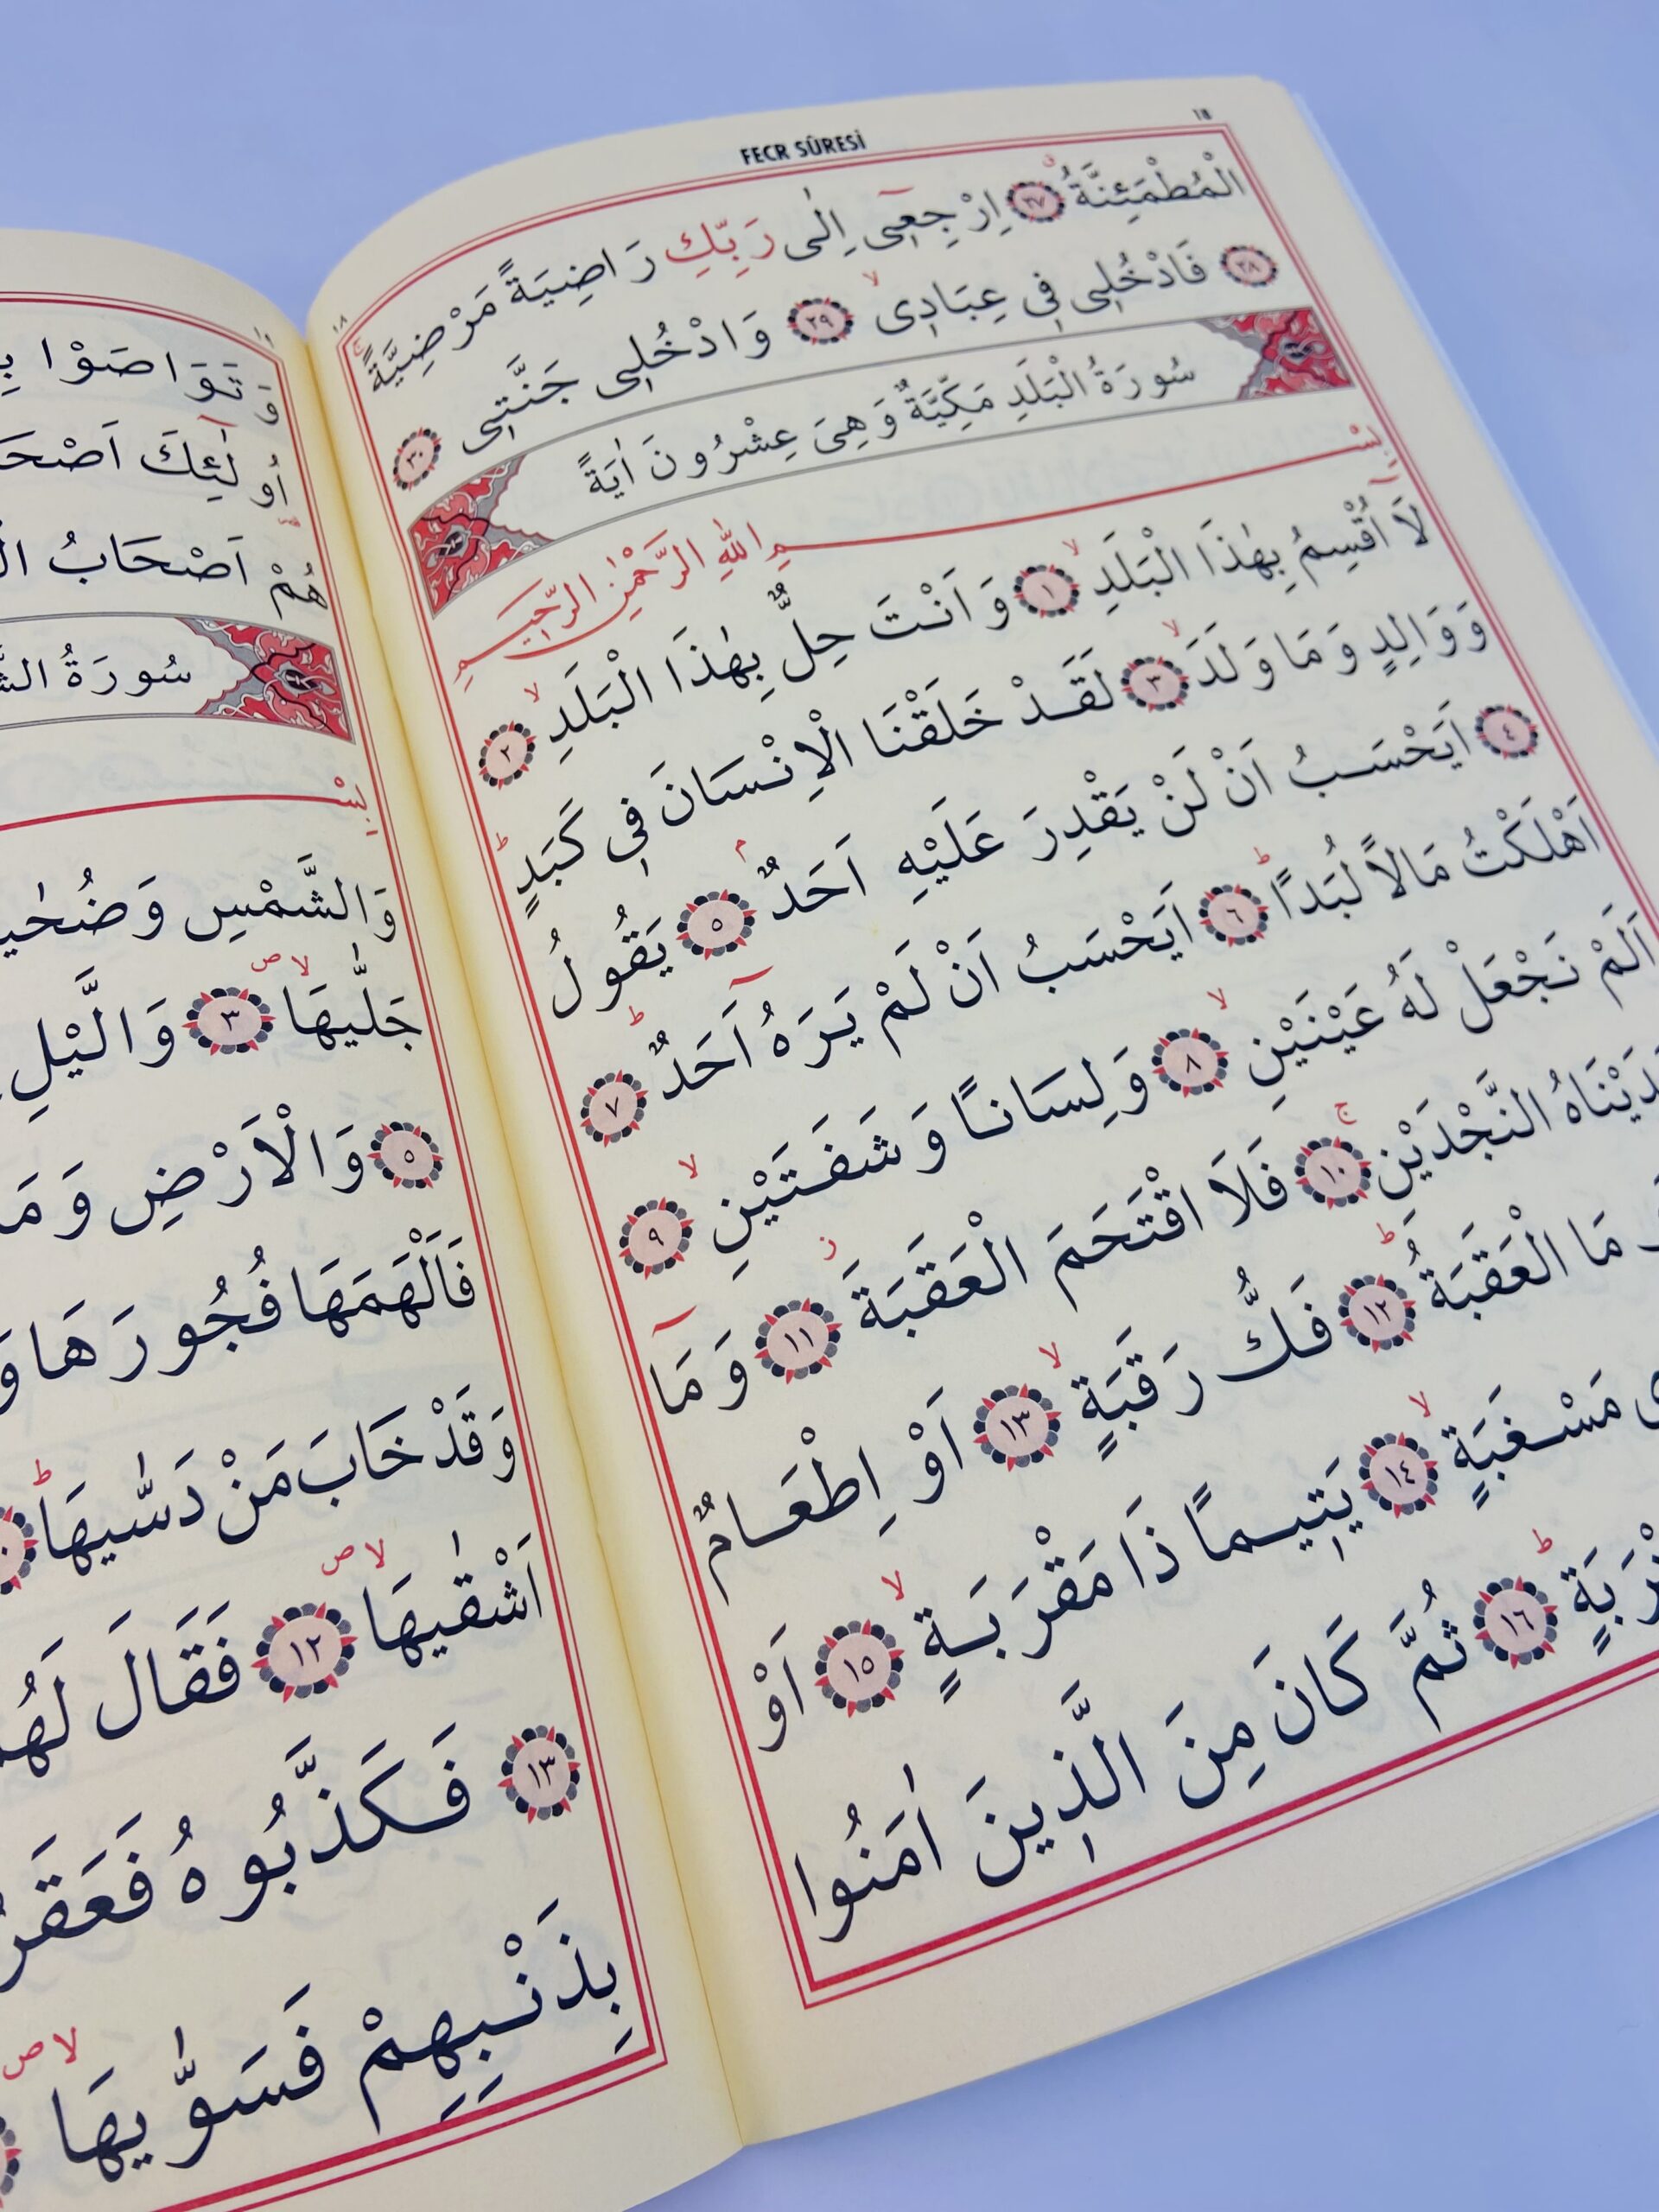 FECR SÛRESİ
١٨
الْمُطْمَئِنَّةُ ﴿٢٧﴾ اِرْجِعٖٓى اِلٰى رَبِّكِ رَاضِيَةً مَرْضِيَّةً
﴿٢٨﴾ فَادْخُلٖى فٖى عِبَادٖى ﴿٢٩﴾ وَادْخُلٖى جَنَّتٖى ﴿٣٠﴾
سُورَةُ الْبَلَدِ مَكِّيَّةٌ وَهِىَ عِشْرُونَ اٰيَةً
بِسْمِ اللهِ الرَّحْمٰنِ الرَّحٖيمِ
لَٓا اُقْسِمُ بِهٰذَا الْبَلَدِ ﴿١﴾ وَاَنْتَ حِلٌّ بِهٰذَا الْبَلَدِ ﴿٢﴾
وَوَالِدٍ وَمَا وَلَدَ ﴿٣﴾ لَقَدْ خَلَقْنَا الْاِنْسَانَ فٖى كَبَدٍ
﴿٤﴾ اَيَحْسَبُ اَنْ لَنْ يَقْدِرَ عَلَيْهِ اَحَدٌ ﴿٥﴾ يَقُولُ
اَهْلَكْتُ مَالاً لُبَدًا ﴿٦﴾ اَيَحْسَبُ اَنْ لَمْ يَرَهُٓ اَحَدٌ ﴿٧﴾
اَلَمْ نَجْعَلْ لَهُ عَيْنَيْنِ ﴿٨﴾ وَلِسَانًا وَشَفَتَيْنِ ﴿٩﴾
النَّجْدَيْنِ ﴿١٠﴾ فَلَا اقْتَحَمَ الْعَقَبَةَ ﴿١١﴾ وَمَٓا
مَا الْعَقَبَةُ ﴿١٢﴾ فَكُّ رَقَبَةٍ ﴿١٣﴾ اَوْ اِطْعَامٌ
مَسْغَبَةٍ ﴿١٤﴾ يَتٖيمًا ذَا مَقْرَبَةٍ ﴿١٥﴾ اَوْ
﴿١٦﴾ ثُمَّ كَانَ مِنَ الَّذٖينَ اٰمَنُوا
وَتَوَاصَوْا
اُولٰٓئِكَ
هُمْ اَصْحَابُ
سُورَةُ
وَالشَّمْسِ
جَلّٰيهَا ﴿٣﴾ وَالَّيْلِ
﴿٥﴾ وَالْاَرْضِ
فَاَلْهَمَهَا فُجُورَهَا
وَقَدْ خَابَ مَنْ دَسّٰيهَا
اَشْقٰيهَا ﴿١٢﴾ فَقَالَ
﴿١٣﴾ فَكَذَّبُوهُ
بِذَنْبِهِمْ فَسَوّٰيهَا